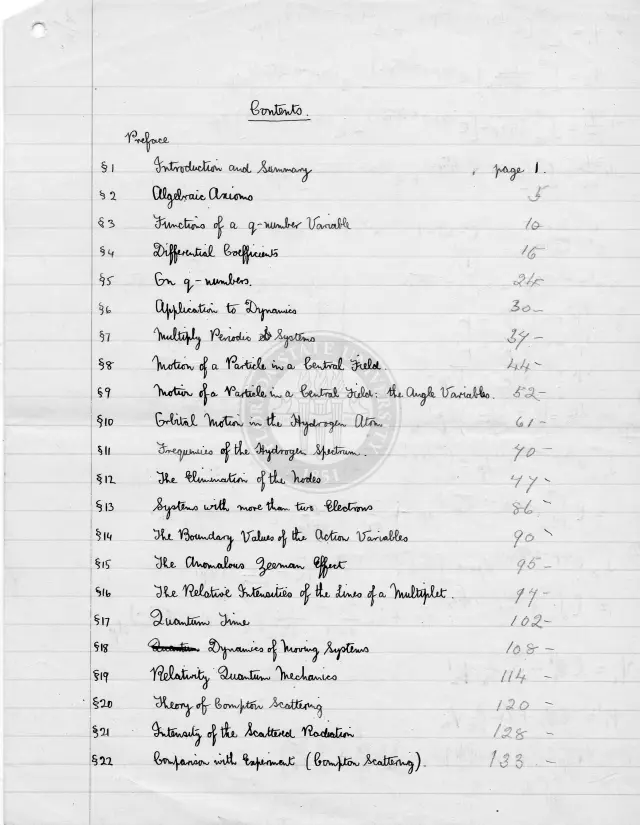 Contents.
Preface
§1 Introduction and Summary page 1.
§2 Algebraic Axioms 5
§3 Functions of a q-number Variable 10
§4 Differential Coefficients 16
§5 On q-numbers. 24
§6 Application to Dynamics 30-
§7 Multiply Periodic Systems 34-
§8 Motion of a Particle in a Central Field. 44-
§9 Motion of a Particle in a Central Field: the Angle Variables. 52-
§10 Orbital Motion in the Hydrogen Atom 61-
§11 Frequencies of the Hydrogen Spectrum. 70-
§12 The Elimination of the Nodes 77-
§13 Systems with more than two Electrons 86-
§14 The Boundary Values of the Action Variables 90-
§15 The Anomalous Zeeman Effect 95-
§16 The Relative Intensities of the Lines of a Multiplet. 97-
§17 Quantum Time 102-
§18 Quantum Dynamics of Moving Systems 108-
§19 Relativity Quantum Mechanics 114-
§20 Theory of Compton Scattering 120-
§21 Intensity of the Scattered Radiation 128-
§22 Comparison with Experiment (Compton Scattering). 133-
STATE UNIVERSITY
1851